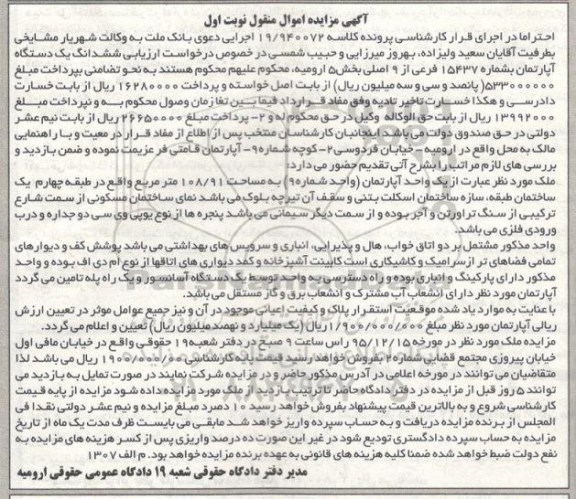 آگهی مزایده اموال منقول نوبت اول
احتراما در اجرای قرار کارشناسی پرونده کلاسه ۱۹/۹۴۰۰۷۲ اجرایی دعوی بانک ملت به وکالت شهریار مشایخی
بطرفیت آقایان سعید ولیزاده، بهروز میرزایی و حبیب شمسی در خصوص درخواست ارزیابی ششدانگ یک دستگاه
آپارتمان بشماره ۱۵۴۳۷ فرعی از ۹ اصلی بخش۵ ارومیه، محکوم علیهم محکوم هستند به نحو تضامنی بپرداخت مبلغ
۵۳۳۰۰۰۰۰۰ (پانصد و سی و سه میلیون ریال) از بابت اصل خواسته و پرداخت ۱۶۲۸۰۰۰۰ ریال از بابت خسارت
دادرسی و هکذا خسارت تاخیر تادیه وفق مفاد قرارداد فیمابین تا زمان وصول محکوم به و نپرداخت مبلغ
۱۳۹۹۲۰۰۰ ریال از بابت حق الوکاله وکیل در حق محکوم له و ۲- پرداخت مبلغ ۲۶۶۵۰۰۰۰ ریال از بابت نیم عشر
دولتی در حق صندوق دولت می باشد. اینجانبان کارشناسان منتخب پس از اطلاع از مفاد قرار در معیت و با راهنمایی
مالک به محل واقع در ارومیه - خیابان فردوسی۲- کوچه شماره۹- آپارتمان قامتی فر عزیمت نموده و ضمن بازدید و
بررسی های لازم مراتب را بشرح آتی تقدیم حضور می دارد:
ملک مورد نظر عبارت از یک واحد آپارتمان (واحد شماره۹) به مساحت ۱۰۸/۹۱ متر مربع واقع در طبقه چهارم یک
ساختمان طبقه، سازه ساختمان اسکلت بتنی و سقف آن تیرچه بلوک می باشد نمای ساختمان مسکونی از سمت شارع
ترکیبی از سنگ تراورتن و آجر بوده و از سمت دیگر سیمانی می باشد پنجره ها از نوع یو پی وی سی دو جداره و درب
ورودی فلزی می باشد.
واحد مذکور مشتمل بر دو اتاق خواب، هال و پذیرایی، انباری و سرویس های بهداشتی می باشد پوشش کف و دیوارهای
تمامی فضاهای تر از سرامیک و کاشیکاری است کابینت آشپزخانه و کمد دیواری های اتاقها از نوع ام دی اف بوده و واحد
مذکور دارای پارکینگ و انباری بوده و راه دسترسی به واحد توسط یک دستگاه آسانسور و یک راه پله تامین می گردد
آپارتمان مورد نظر دارای انشعاب آب مشترک و انشعاب برق و گاز مستقل می باشد.
با عنایت به موارد یاد شده موقعیت استقرار پلاک و کیفیت اعیانی موجود در آن و نیز جمیع عوامل موثر در تعیین ارزش
ریالی آپارتمان مورد نظر مبلغ ۱/۹۰۰/۰۰۰/۰۰۰ ریال (یک میلیارد و نهصد میلیون ریال) تعیین و اعلام می گردد.
مزایده ملک مورد نظر در مورخه ۹۵/۱۲/۱۵ راس ساعت ۹ صبح در دفتر شعبه۱۹ حقوقی واقع در خیابان مافی اول
خیابان پیروزی مجتمع قضایی شماره۲ بفروش خواهد رسید قیمت پایه کارشناسی ۱۹۰۰/۰۰۰/۰۰ ریال می باشد لذا
متقاضیان می توانند در مورخه اعلامی در آدرس مذکور حاضر و در مزایده شرکت نمایند در صورت تمایل به بازدید می
توانند ۵ روز قبل از مزایده در دفتر دادگاه حاضر ترتیب بازدید از ملک مورد مزایده داده شود مزایده از پایه قیمت
کارشناسی شروع و به بالاترین قیمت پیشنهاد بفروش خواهد رسید ۱۰ دصرد مبلغ مزایده و نیم عشر دولتی نقدا فی
المجلس از برنده مزایده دریافت و به حساب سپرده واریز خواهد شد مابقی می بایست ظرف مدت یک ماه از تاریخ
مزایده به حساب سپرده دادگستری تودیع شود در غیر این صورت ده درصد واریزی پس از کسر هزینه های مزایده به
نفع دولت ضبط خواهد شده ضمنا کلیه هزینه های قانونی به عهده برنده مزایده خواهد بود. م الف ۱۳۰۷
مدیر دفتر دادگاه حقوقی شعبه ۱۹ دادگاه عمومی حقوقی ارومیه